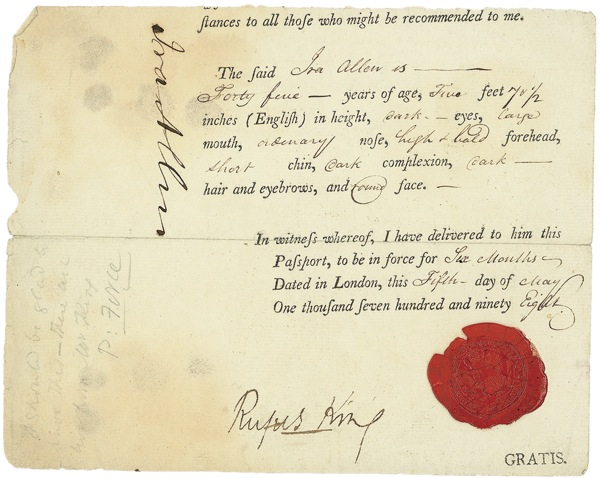 stances to all those who might be recommended to me.
The said Ira Allen is —
Forty five — years of age, Five feet
inches (English) in height, dark — eyes, large
mouth, ordenary nose, high & bald forehead,
short chin, dark complexion, dark —
hair and eyebrows, and round face. —
In witness whereof, I have delivered to him this
Passport, to be in force for Six Months
Dated in London, this Fifth day of May
One thousand seven hundred and ninety Eight
Rufus King
GRATIS.
Ira Allen
P: Force